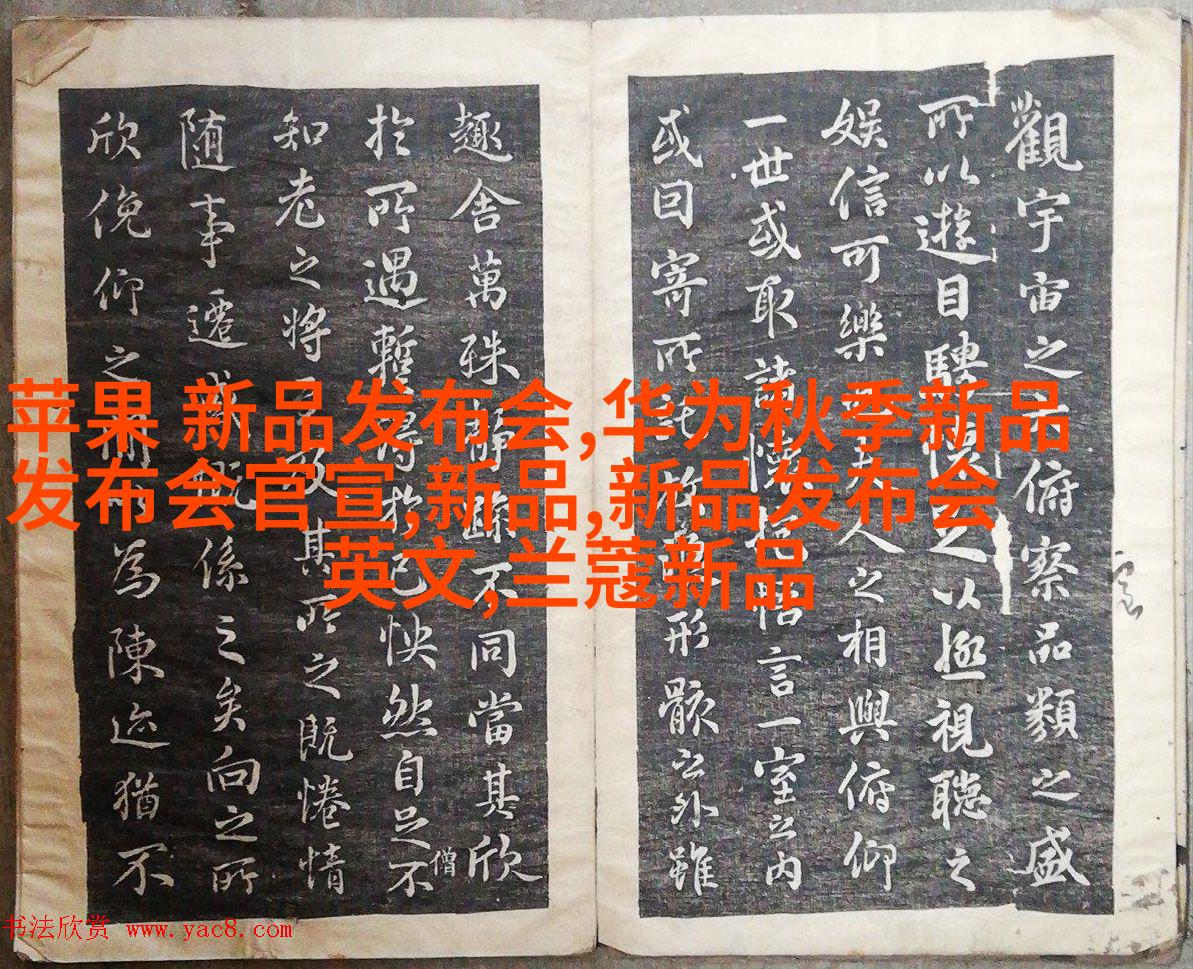 觀宇宙之大俯察品類之盛
所以遊目騁懷足以極視聽之
娱信可樂也夫人之相與俯仰
一世或取諸懷抱悟言一室之内
或因寄所託放浪形骸之外雖
趣舍萬殊静躁不同當其欣
扵所遇暫得扵己怏然自足不
僧
知老之将至及其所之既惓情
随事遷感慨係之矣向之所
欣俛仰之閒以為陳迹猶不
苹果 新品发布会,华为秋季新品
发布会官宣,新品,新品发布会
英文,兰蔻新品
书法欣赏 www.yac8.com